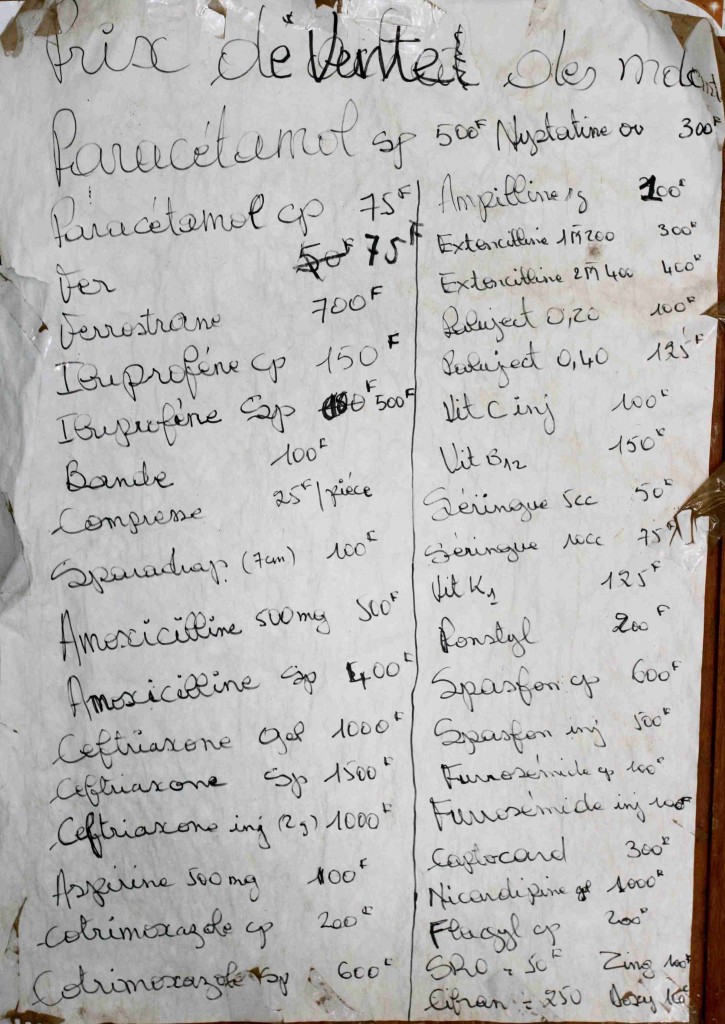 Prix de Vente des
Paracétamol Sp 500F
Nystatine ov 300F
Paracétamol cp 75F
Fer 50F 75F
Ferrostrane 700F
Ibuprofène cp 150F
Ibuprofène Sp 500F
Bande 100F
Compresse 25F/pièce
Sparadrap (7cm) 100F
Amoxicilline 500mg 500F
Amoxicilline Sp 400F
Ceftriaxone gel 1000F
Ceftriaxone Sp 1500F
Ceftriaxone inj (2g) 1000F
Aspirine 500mg 100F
Cotrimoxazole cp 200F
Cotrimoxazole Sp 600F
Ampilline 1g 200F
Extencilline 1M200 300F
Extencilline 2M400 400F
Paluject 0,20 100F
Paluject 0,40 125F
Vit C inj 100F
Vit B12 150F
Séringue 5cc 50F
Séringue 10cc 75F
Vit K1 125F
Ponstyl 200F
Spasfon cp 600F
Spasfon inj 500F
Furrosémide cp 100F
Furrosémide inj 100F
Captocard 300F
Nicardipine gel 1000F
Flagyl cp 200F
SRO = 50F Zinc 100F
Cifran = 250 Doxy